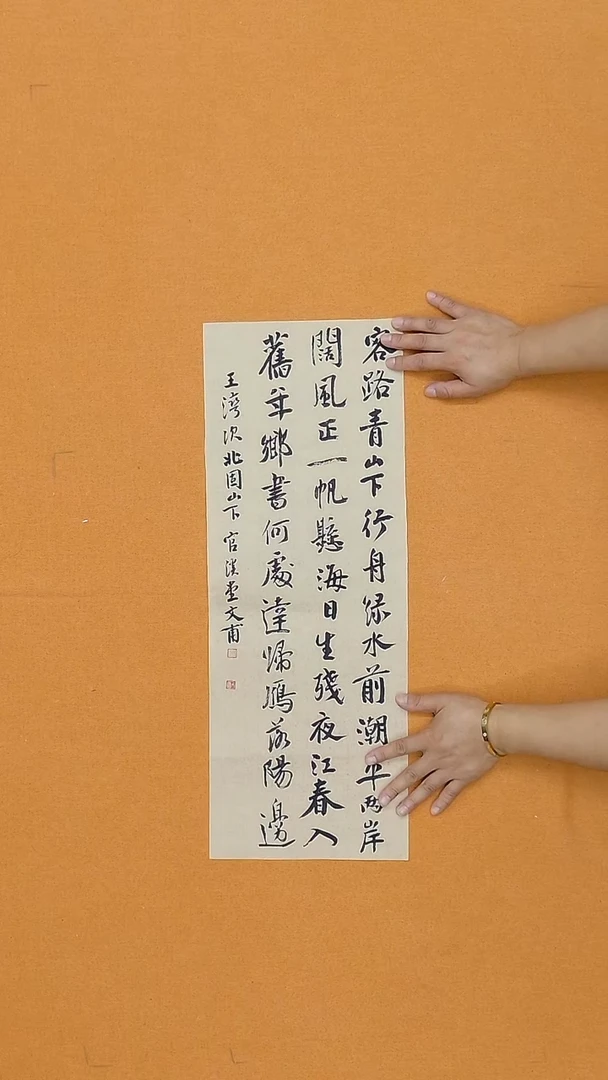 客路青山下行舟綠水前潮平兩岸
闊風正一帆懸海日生殘夜江春入
舊年鄉書何處達歸鴈落陽邊
王灣次北固山下 官 文甫